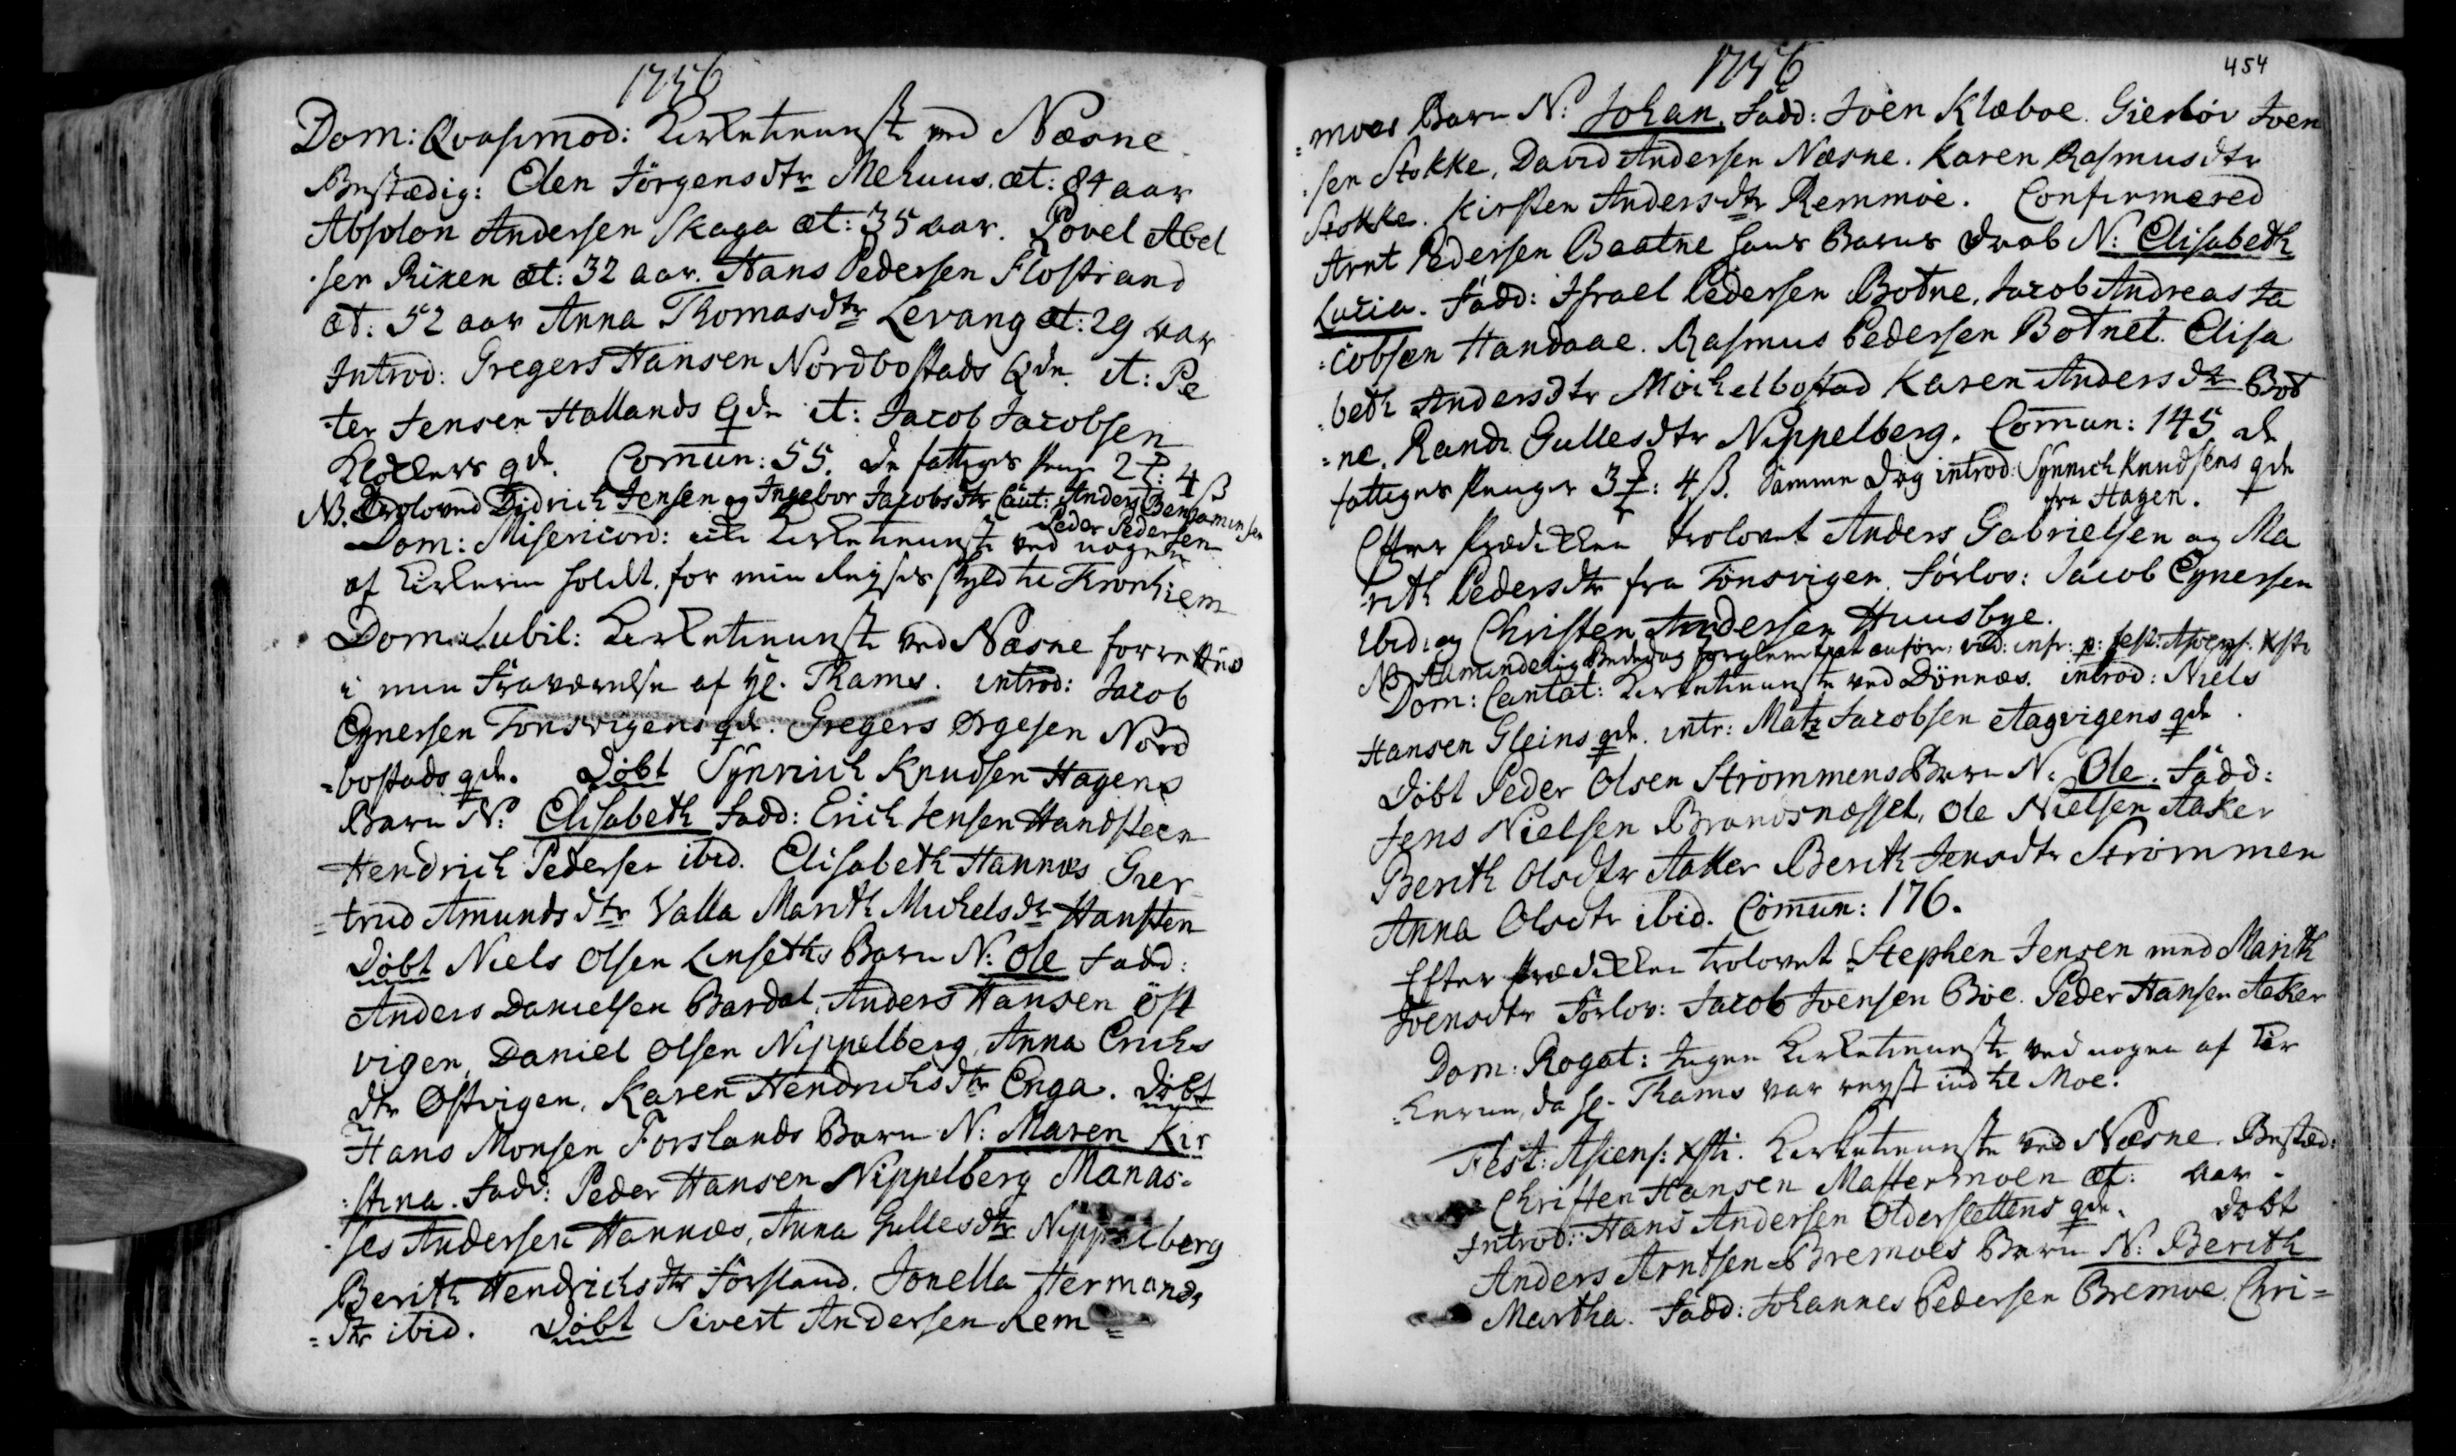 1756
Dom: Qvasimod: Kirketienneste ved Næsne.
Bestædig: Elen Jörgensdtr Mehuus. æt: 84 aar
Absolon Andersen Skaga æt: 35 aar. Povel Abel
-sen Rixen æt: 32 aar. Hans Pedersen Flostrand
æt: 52 aar Anna Thomasdtr Levang æt: 29 aar
Introd: Gregers Hansen Nordbostads Qde. it: Pe
-ter Jensen Hallands qde it: Jacob Jacobsen
qde. Comun: 55. de fattiges Penge 2 : 4 ß
NB. Troloved Didrich Jensen og Ingebor Jacobsdtr Caut: Anders Benjaminsen
Peder Pedersen
Dom: Misericord: Kirketienneste ved nogen
af Kirkerne holdt, for min Reyses skyld til Tronhiem
Dom: Jubil: Kirketienneste ved Næsne forretted
i min Fraværelse af Hr. Thams. introd: Jacob
Eynersen Tonsvigens qde. Gregers Ørgesen Nord
-bostads qde. Döbt Synnich Knudsen Hagens
Barn N: Elisabeth Fadd: Erich Jensen Handsteen
Hendrich Pedersen ibid. Elisabeth Hannæs Gier
-trud Amundsdtr Valla Marith Michelsdtr Hansten
Döbt Niels Olsen Lenseths Barn N: Ole Fadd:
Anders Danielsen Bardal, Anders Hansen Öst
vigen, Daniel Olsen Nippelberg, Anna Erichs
dtr Østvigen, Karen Hendrichsdtr Enga. Döbt
Hans Monsen Forslands Barn N: Maren Kir
-stina. Fadd: Peder Hansen Nippelberg Manas-
-ses Andersen Hannæs, Anna Gullesdtr Nippelberg
Berith Hendrichsdtr Forsland. Jonella Hermands
-dtr ibid. Döbt Sivert Andersen Rem-
1756
454
-moes Barn N: Johan, Fadd: Joen Klæboe. Gierlöv Joen
-sen Stokke, David Andersen Næsne. Karen Rasmusdtr
Stokke. Kirsten Andersdtr Remmöe. Confirmered
Arnt Pedersen Baatne hans Barns Daab N: Elisabeth
Lucia. Fadd: Israel Pedersen Botne, Jacob Andreas Ja
-cobsen Handaae. Rasmus Pedersen Botnet. Elisa
-beth Andersdtr Möchelbostad Karen Andersdtr Bot
-ne. Randi Gullesdtr Nippelberg. Comun: 145 de
fattiges Penge 3 : 4 ß. Samme Dag introd: Synnich Knudsens qde
fra Hagen.
Efter Prædiken trolovet Anders Gabrielsen og Ma
-rith Pedersdtr fra Tonsvigen. Forlov: Jacob Eynersen
ibid: og Christen Andersen Huusbye.
NB Almindelig Bededag forglemt at anföre, vid: infr: p: fest: Ascens: Xsti
Dom: Cantat: Kirketienneste ved Dönnæs. introd: Niels
Hansen Gleins qde. intr: Matz Jacobsen Aagvigens qde.
Döbt Peder Olsen Strömmens Barn N: Ole. Fadd:
Jens Nielsen Brandsnæsset, Ole Nielsen Aaker
Berith Olsdtr Aaker Berith Jensdtr Strömmen
Anna Olsdtr ibid. Comun: 176.
Efter Prædiken trolovet Stephen Jensen med Marith
Joensdtr Forlov: Jacob Joensen Böe. Peder Hansen Aaker
Dom: Rogat: Ingen Kirketienneste ved nogen af Kir
-kerne, da Hr. Thams var reyst ind til Moe.
Fest: Ascens: Xsti. Kirketienneste ved Næsne. Bested:
Christen Hansen Mastermoen æt: aar.
Introd: Hans Andersen Olderslettens qde. Döbt
Anders Arntsen Bremoes Barn N: Berith
Martha. Fadd: Johannes Pedersen Bremoe, Chri=